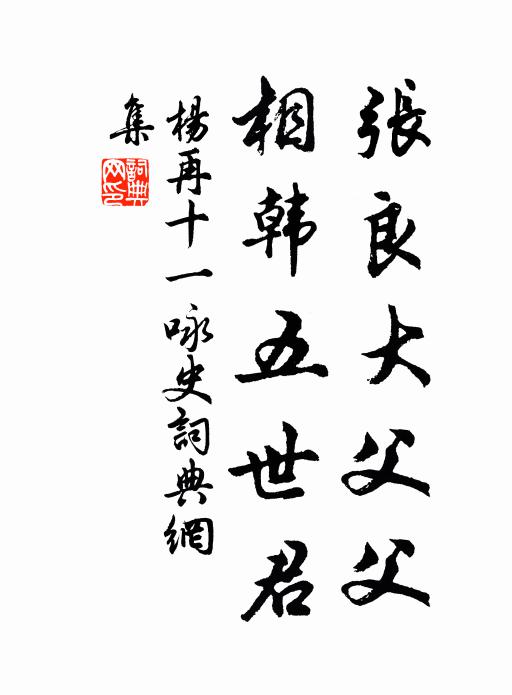 張良大父父
相韓五世君
楊再十一咏史詞典網
集
詞典網印